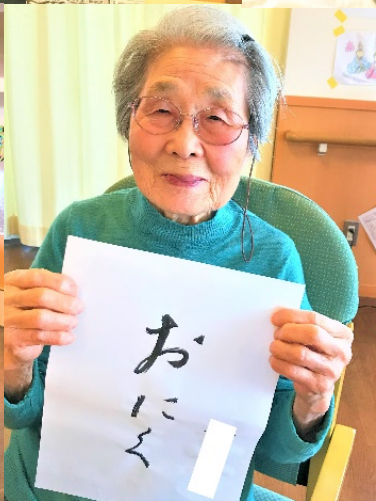 おにく